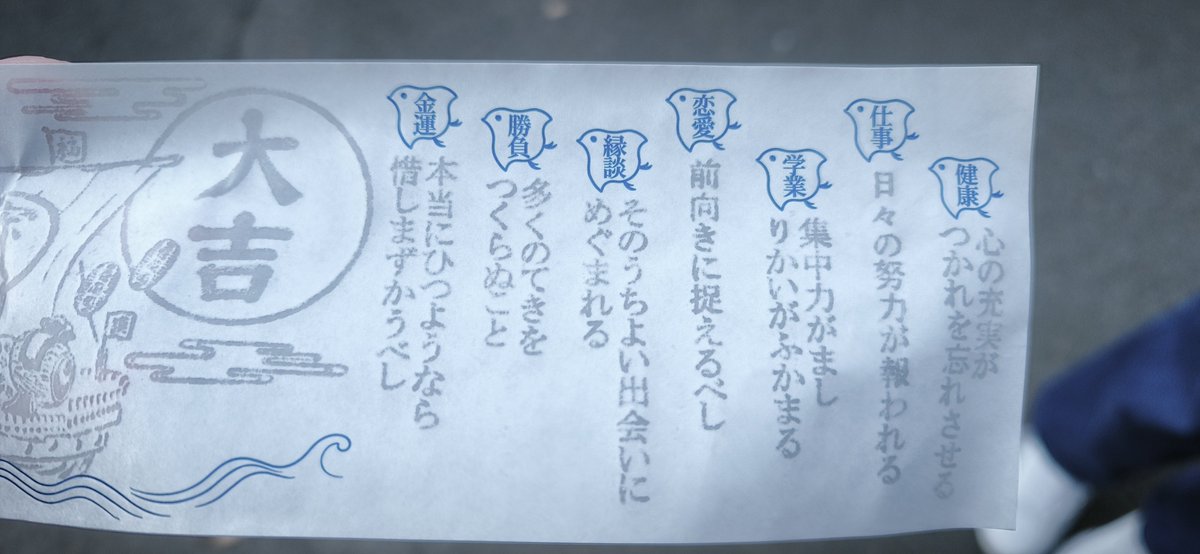 健康
心の充実が
つかれを忘れさせる
仕事
日々の努力が報われる
学業
集中力がまし
りかいがふかまる
恋愛
前向きに捉えるべし
縁談
そのうちよい出会いに
めぐまれる
勝負
多くのてきを
つくらぬこと
金運
本当にひつようなら
惜しまずかうべし
大吉